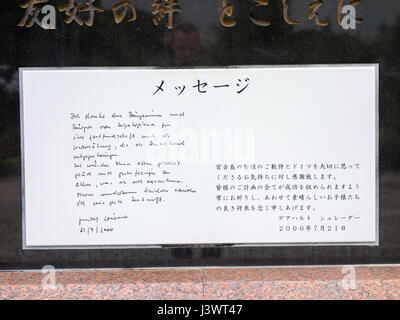 友好の絆 とこしえに
メッセージ
Ich danke den Bürgerinnen und
Bürgern von Miyakojima für
ihre Gastfreundschaft und die
die sie Deutschland
entgegenbringen.
Ich wünsche Ihnen allen persönlich
Glück und
allen, was sie sich vornehmen.
Ihren wunderbaren Kindern wünsche
ich eine gute Zukunft.
21/7/2000
宮古島の皆様のご歓待とドイツを大切に思って
くださるお気持ちに対し感謝致します。
皆様のご計画の全てが成功を収められますよう
常にお祈りし、あわせて素晴らしいお子様たち
の良き将来を念じ申しあげます。
ゲアハルト シュレーダー
2000年7月21日
alamy
Image ID: J3WT47
www.alamy.com